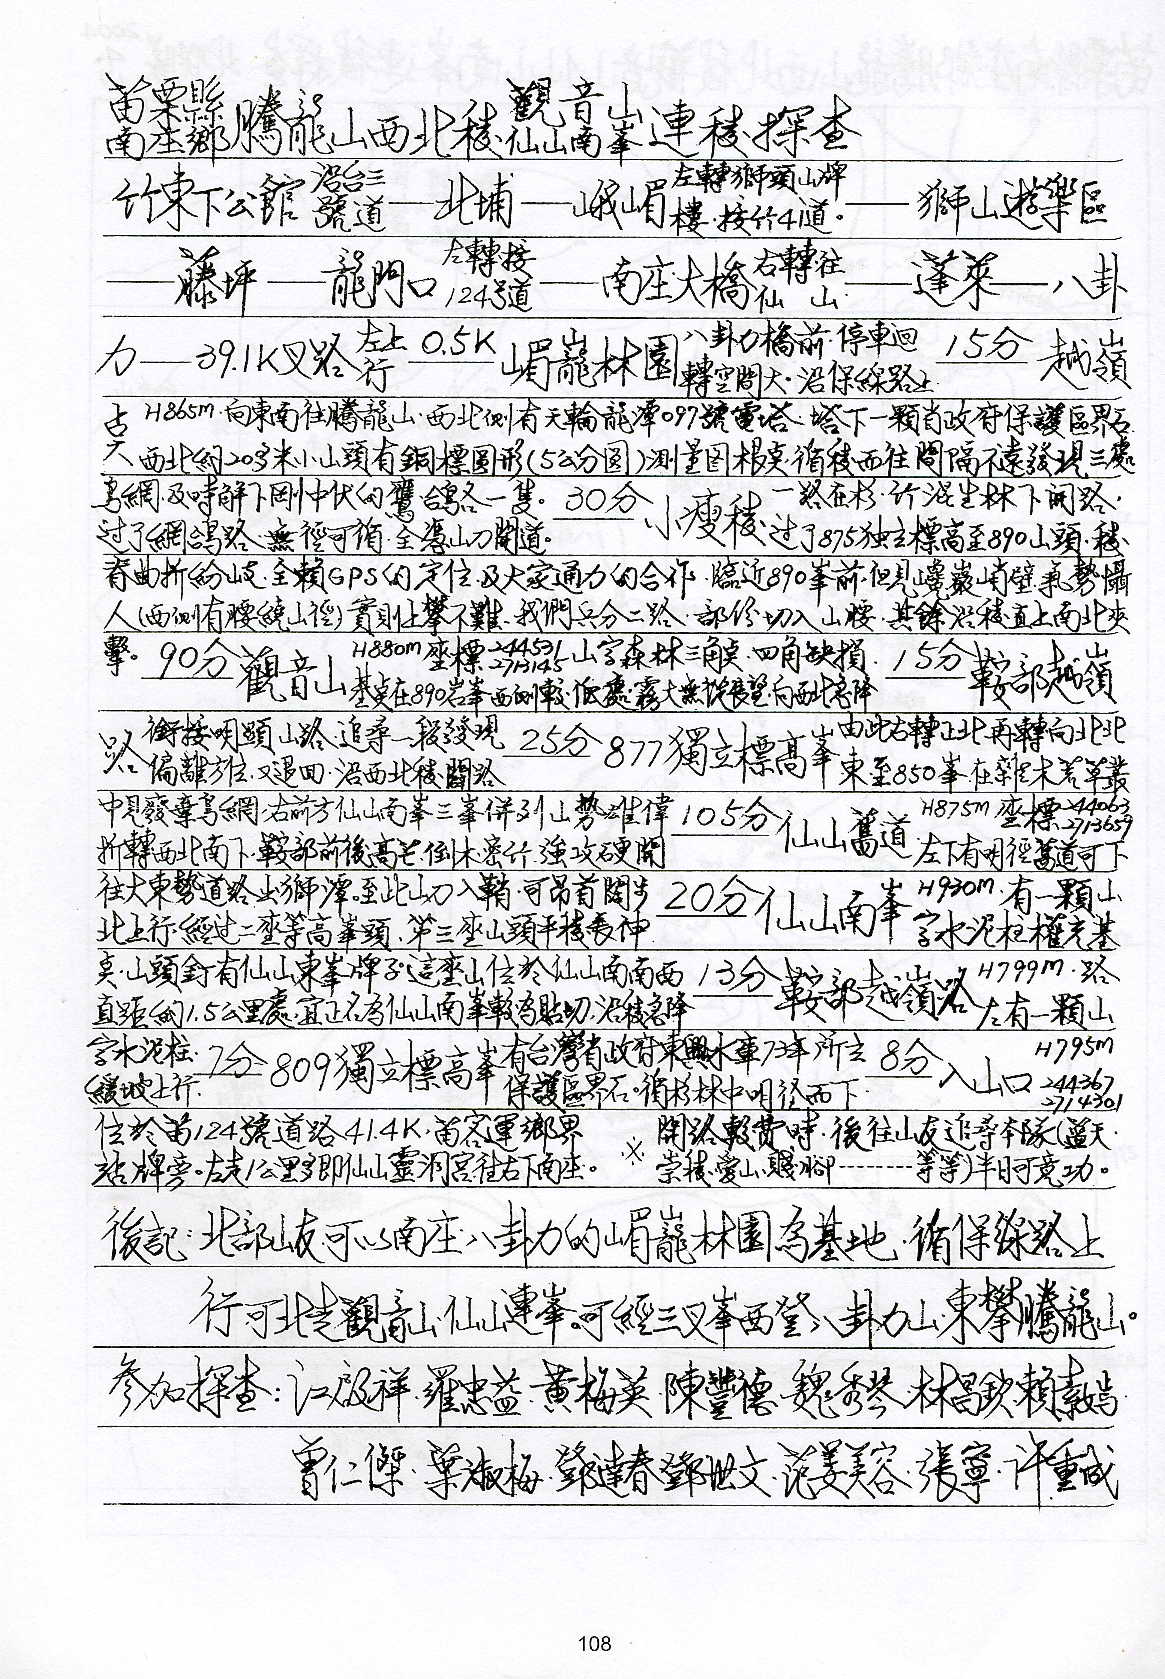 苗栗縣南庄鄉騰龍山西北稜觀音山仙山南峯連稜探查
竹東下公館 沿台三號道 — 北埔 — 峨嵋 左轉獅頭山牌樓·接竹41道。 — 獅山遊樂區
— 藤坪 — 龍門口 左轉·接124号道 — 南庄大橋 右轉·往仙山 — 蓬萊 — 八卦
力 — 39.1K叉路 左上行 0.5K 嵋巃林園 八卦力橋前·停車迴轉空間大·沿保線路上 15分 越嶺
占 H865m·向東南往騰龍山·西北側有天輪龍潭097號電塔·塔下一顆省政府保護區界石
大 西北約20多米小山頭有銅標圓形(5公分圓)測量图根點·循稜西往間隔不遠發現三處
鳥網·及時解下网中伏的鷹·鴿各一隻。 30分 小瘦稜 一路在杉·竹混生林下開路·
过了網鴿路·無徑可循·全憑山刀開道。 过了875独立標高至890山頭·稜
脊曲折紛歧·全賴GPS的定位·及大家通力的合作·臨近890峯前·但見巉巖峭壁·氣勢懾
人(西側有腰繞山徑)實則上攀不難·我們兵分二路·部份切入山腰·其餘沿稜直上南北夾
擊。 90分 觀音山 H880m 座標 244531 2713145 山字森林三角點·四角缺損· 基點在890岩峯西側較低處·霧大無說展望·向西北急降 15分 鞍部越嶺
路 銜接明顯山路·追尋一段發現偏離方位·又退回·沿西北稜開路 25分 877獨立標高峯 由此右轉正北再轉向北北東至850峯·在雜木芒草叢
中見廢棄鳥網·右前方仙山南峯三峯併列山勢雄偉 105分 仙山舊道 H875m 座標 244063 2713659
折轉西北南下·鞍部前後高芒·倒木·密竹·強攻硬開 左下有明徑舊道可下
往大東勢道路出獅潭。至此山刀入鞘·可昂首闊步 20分 仙山南峯 H930m·有一顆山
北上行·經过二座等高峯頭·第三座山頭平稜長伸 字水泥柱權充基
點·山頭釘有仙山東峯牌子·這座山位於仙山南南西 13分 鞍部越嶺路 H799m·路
直距約1.5公里處·宜正名為仙山南峯較為貼切·沿稜急降 左有一顆山
字水泥柱·緩坡上行· 7分 809獨立標高峯 有台灣省政府東興水庫73年所立保護區界石·循杉林中明徑西下 8分 入山口 H795m 244367 2714301
位於苗124號道路41.4K·苗客運鄉界 ※ 開路較費時·後往山友追尋本隊(藍天·
站牌旁。左走1公里多即仙山靈洞宮往右下南庄。 崇稜·愛山·賤腳--------等等)半日可竟功。
後記：北部山友可以南庄·八卦力的嵋巃林園為基地·循保線路上
行可北走觀音山·仙山連峯。可經三叉峯西登八卦力山·東攀騰龍山。
參加探查：江啟祥·羅忠益·黃梅英·陳豐德·魏秀琴·林昌欽·賴素嬌·
曾仁傑·葉淑梅·鄧達春·鄧世文·范姜美容·張寧·許重成
108